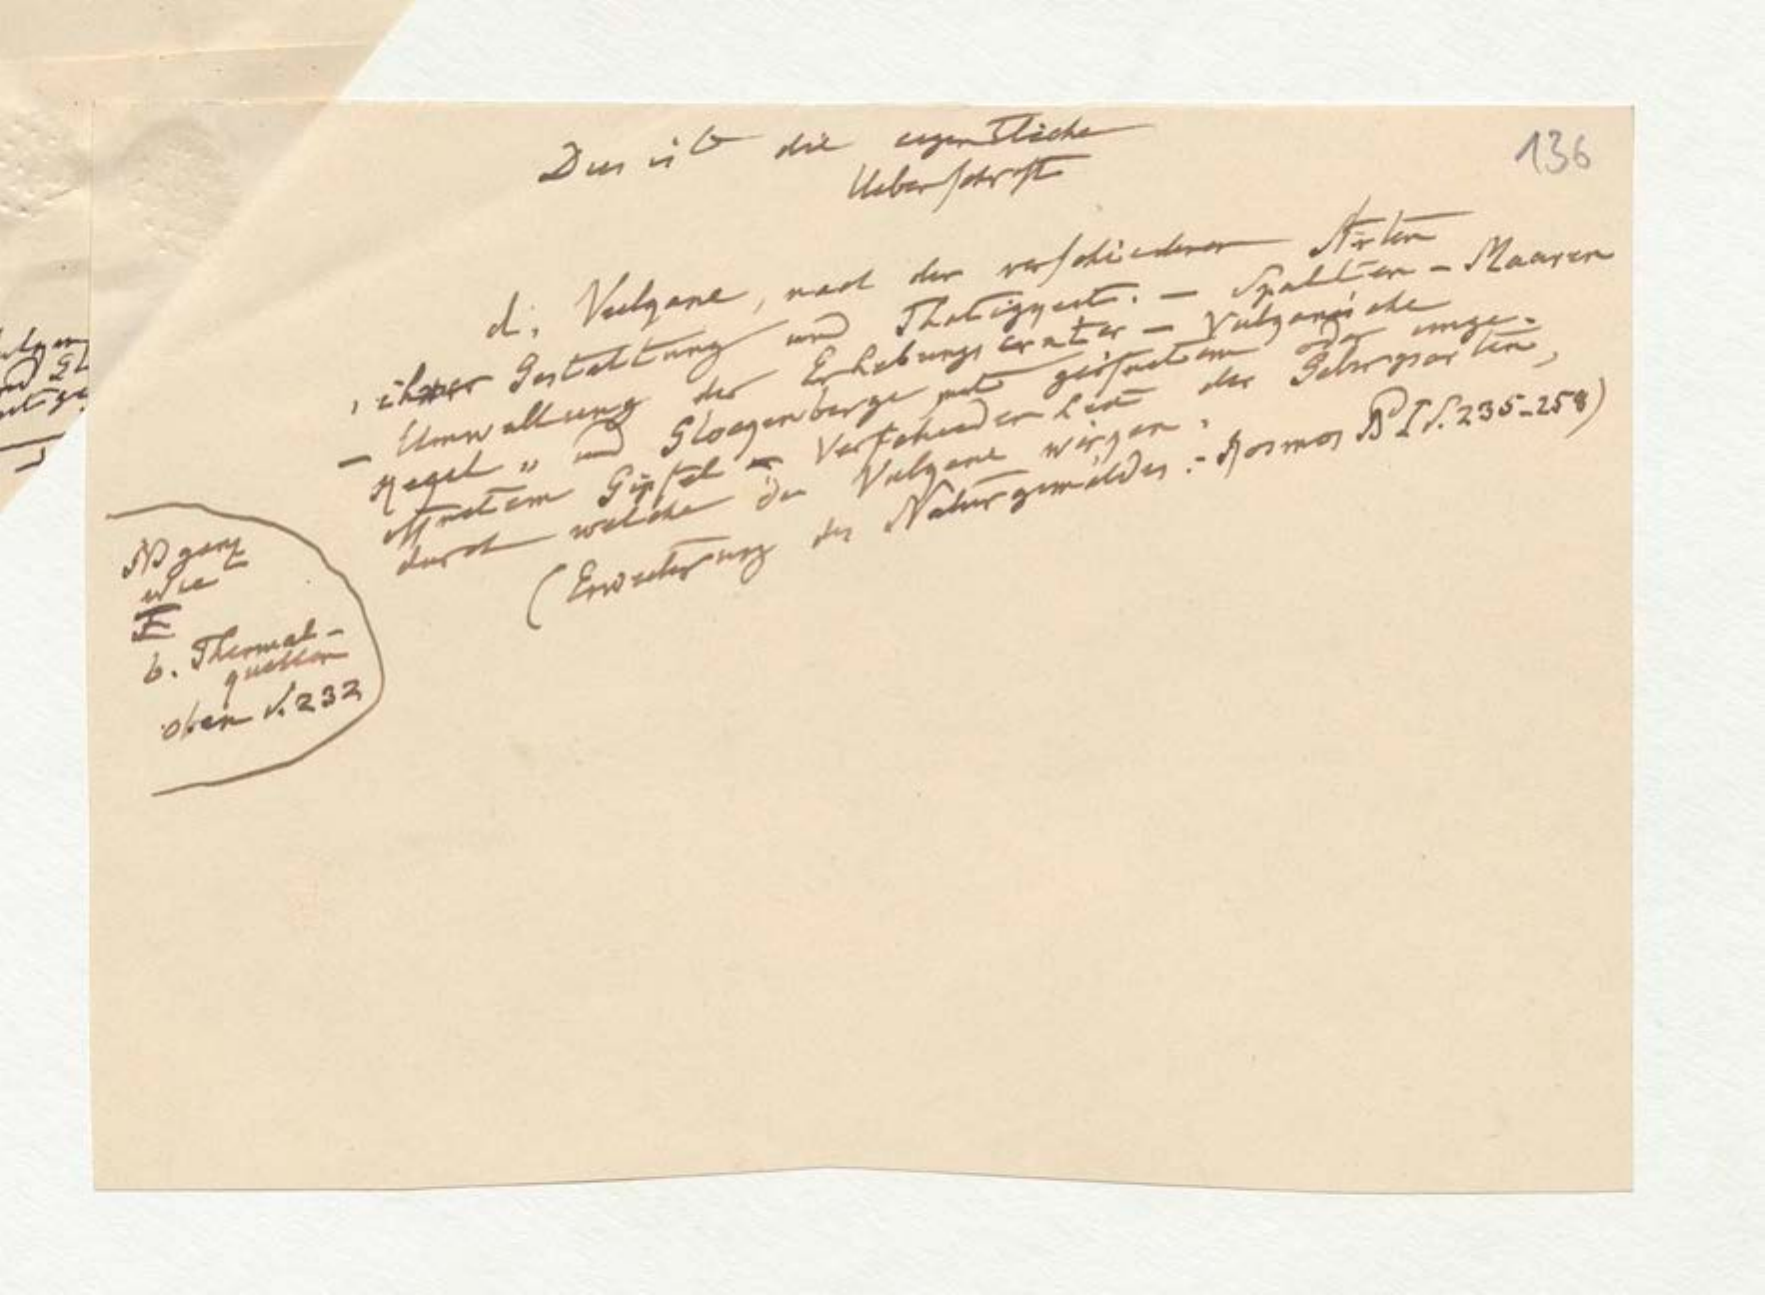 136
Dies ist die eigentliche
Ueberschrift
d. Vulkane, nach den verschiedenen Arten
ihrer Gestaltung und Thätigkeit. – Spalten – Maaren
– Umwallung der Erhebungscrater – Vulkanische
Kegel und Glockenberge mit geöfnetem oder unge-
öfnetem Gipfel – Verschiedenheit der Gebirgsarten,
durch welche die Vulkane wirken.
(Erweiterung des Naturgemäldes: Kosmos Bd I S. 235-258)
NB ganz
wie
b. Thermal-
quellen
oben S. 232